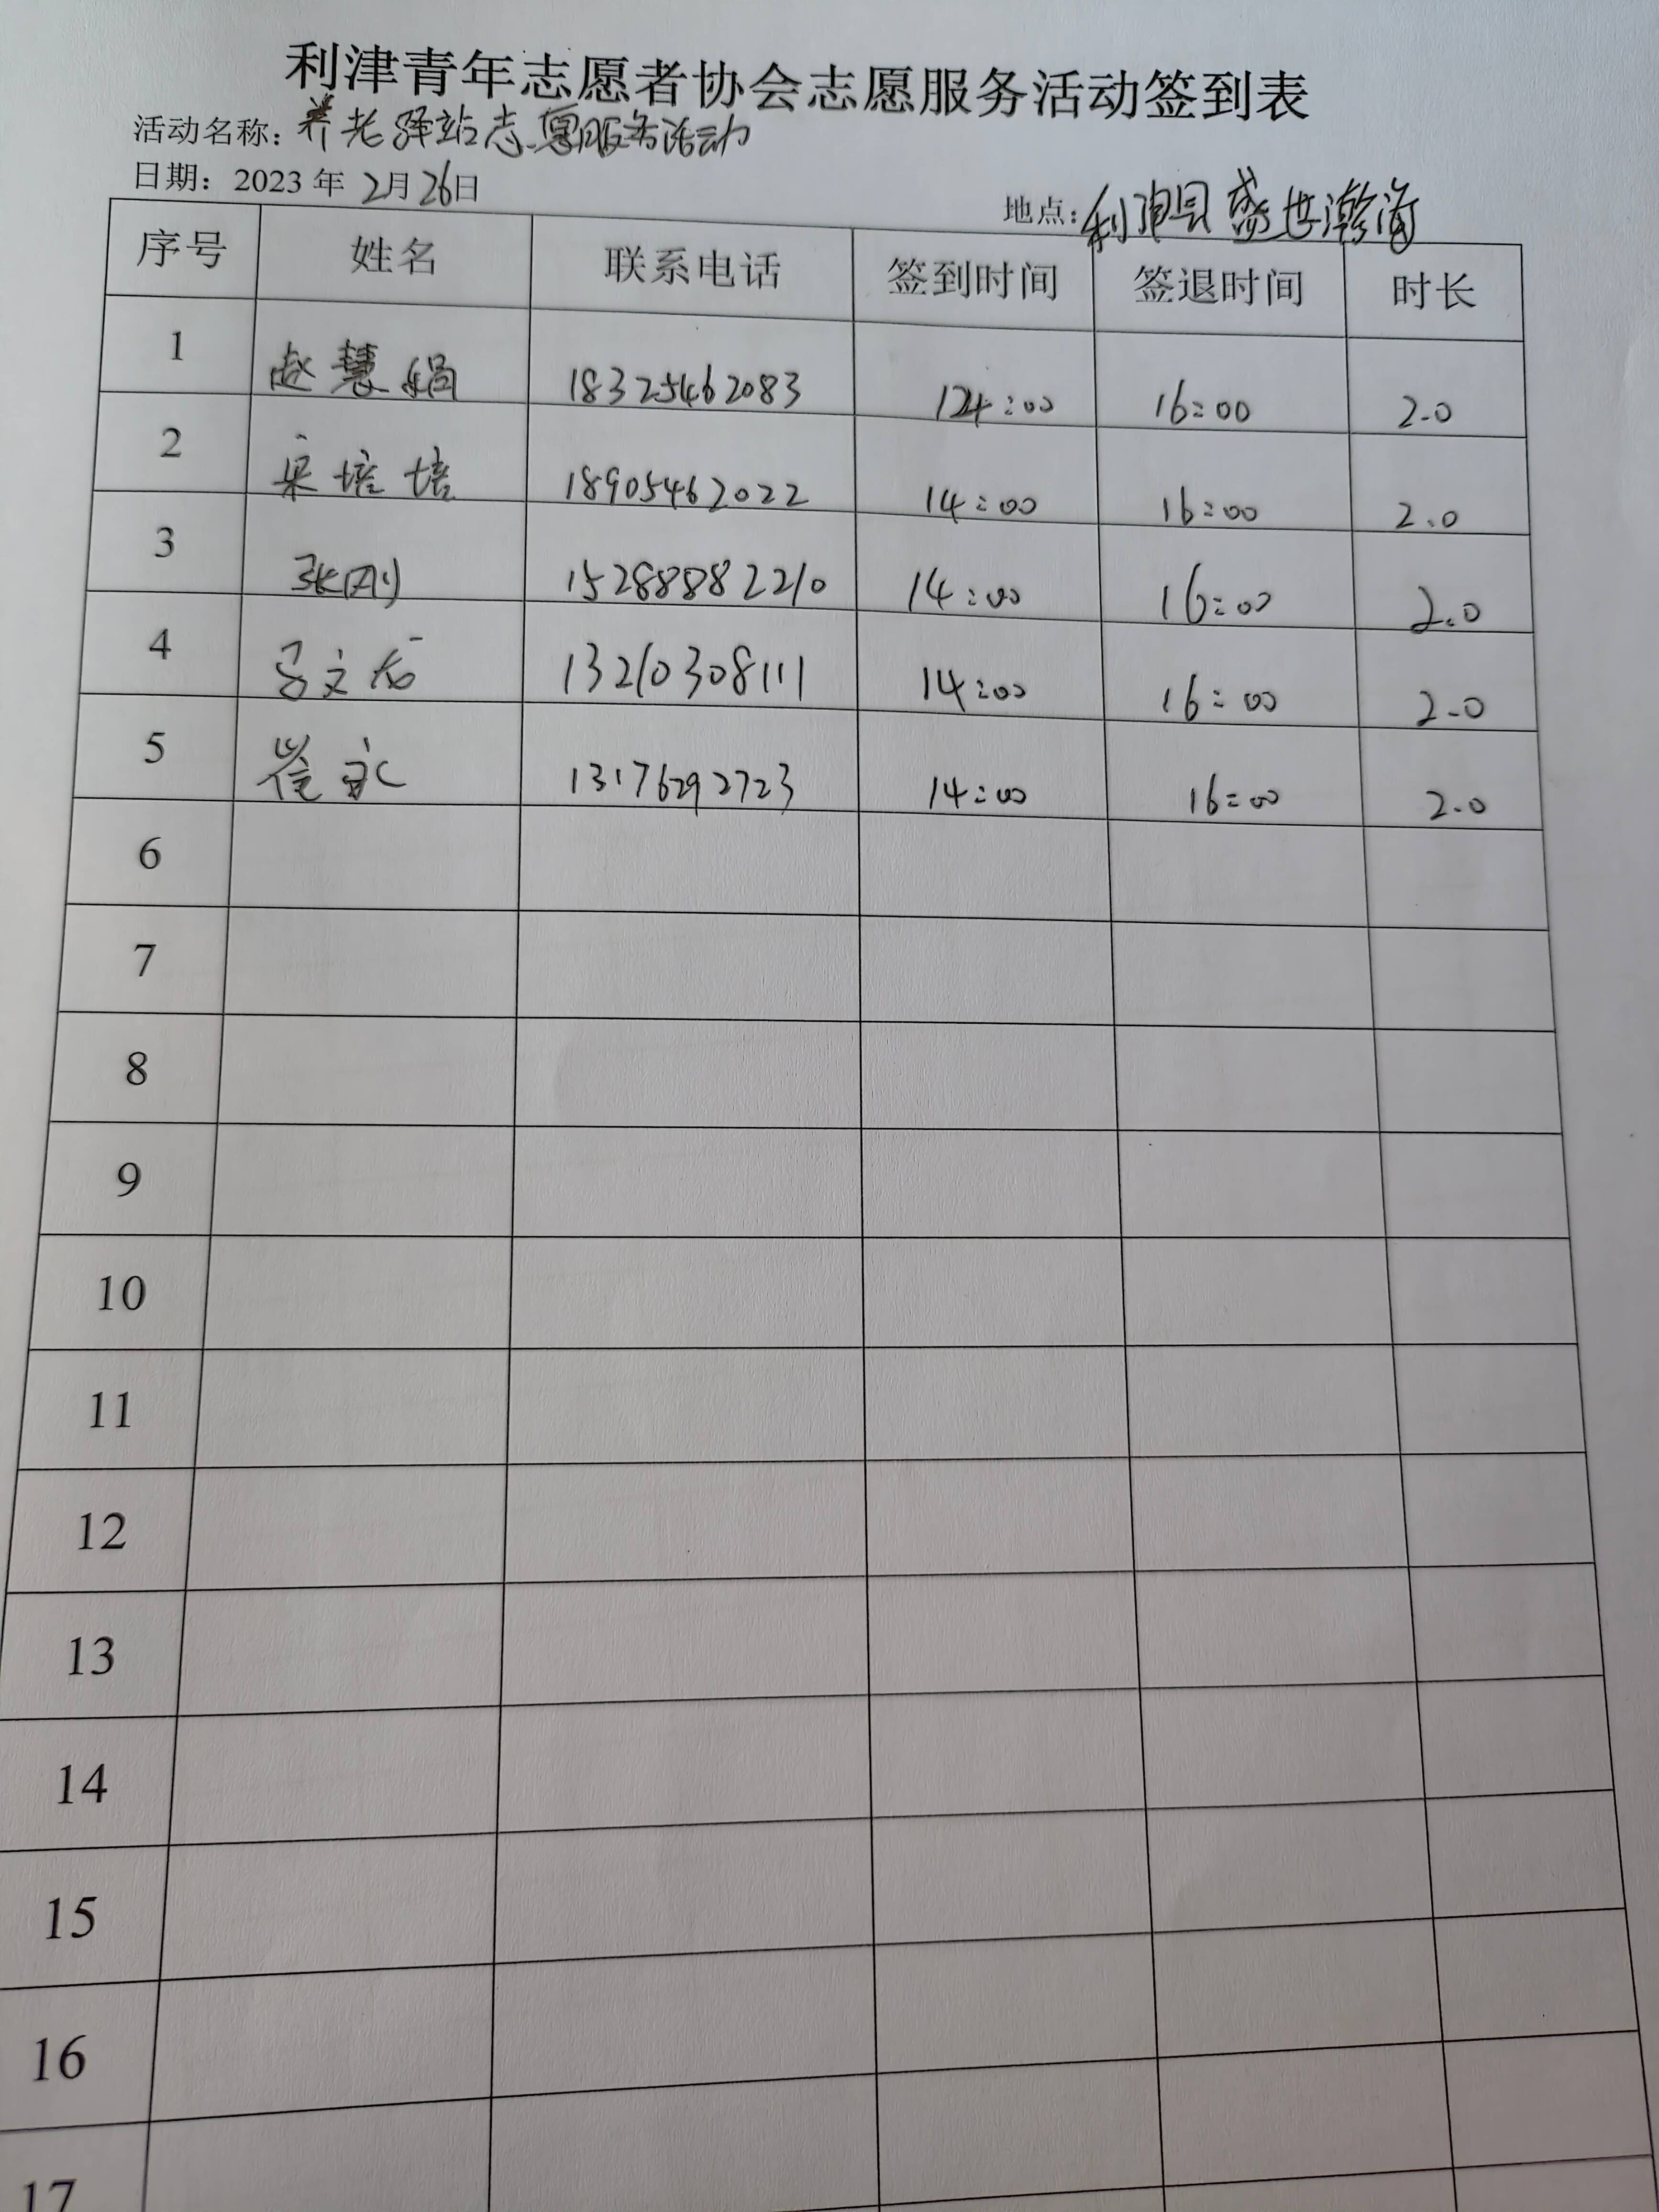 利津青年志愿者协会志愿服务活动签到表
活动名称：养老驿站志愿服务活动
日期：2023年2月26日 地点：利津县盛世瀚海
序号 姓名 联系电话 签到时间 签退时间 时长
1 赵慧娟 18325462083 14:00 16:00 2.0
2 培培 18905462022 14:00 16:00 2.0
3 张刚 15288882210 14:00 16:00 2.0
4 吕文 13210308111 14:00 16:00 2.0
5 崔永 13176292723 14:00 16:00 2.0
6
7
8
9
10
11
12
13
14
15
16
17